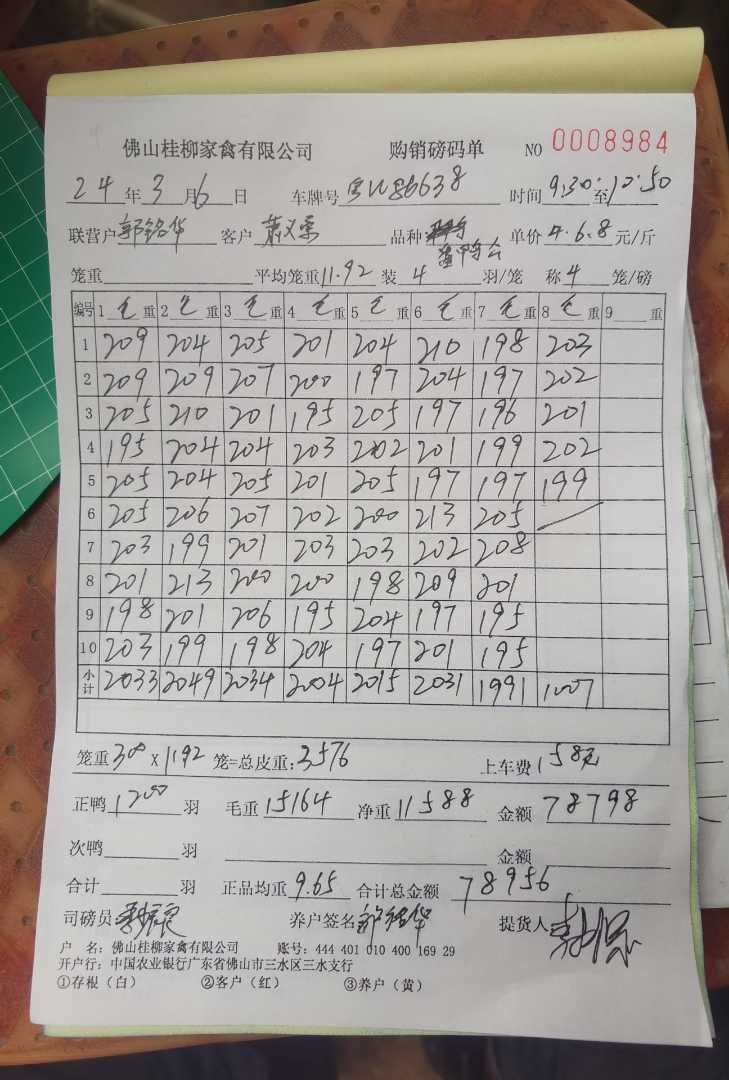 佛山桂柳家禽有限公司 购销磅码单 NO 0008984
24 年 3 月 6 日 车牌号 粤W86638 时间 9:30 至 10:50
联营户 郭铭华 客户 萧 品种 单价 4.6.8 元/斤
笼重 平均笼重 11.92 装 4 羽/笼 称 4 笼/磅
编号 1 毛 重 2 毛 重 3 毛 重 4 毛 重 5 毛 重 6 毛 重 7 毛 重 8 毛 重 9 重
1 209 204 205 201 204 210 198 203
2 209 209 207 200 197 204 197 202
3 205 210 201 195 205 197 196 201
4 195 204 204 203 202 201 199 202
5 205 204 205 201 205 197 197 199
6 205 206 207 202 200 213 205
7 203 199 201 203 203 202 208
8 201 213 200 200 198 209 201
9 198 201 206 195 204 197 195
10 203 199 198 204 197 201 195
小计 2033 2049 2034 2004 2015 2031 1991 1007
笼重 300 x 1192 笼=总皮重: 3576 上车费 158元
正鸭 1200 羽 毛重 15164 净重 11588 金额 78798
次鸭 羽 金额
合计 羽 正品均重 9.65 合计总金额 78956
司磅员 养户签名 郭铭华 提货人
户 名: 佛山桂柳家禽有限公司 账号: 444 401 010 400 169 29
开户行: 中国农业银行广东省佛山市三水区三水支行
①存根（白） ②客户（红） ③养户（黄）